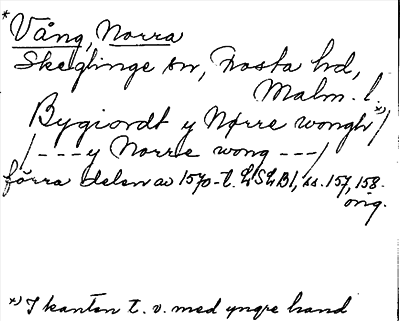 * Vång, Norra
Skeglinge sn, Frosta hd,
Malm. l.
Bygiordt y Nørre wongh *)
/---y Norre wong---/
förra delen av 1570-t. LSLB1, ss. 157, 158.
orig.
*) I kanten t. v. med yngre hand